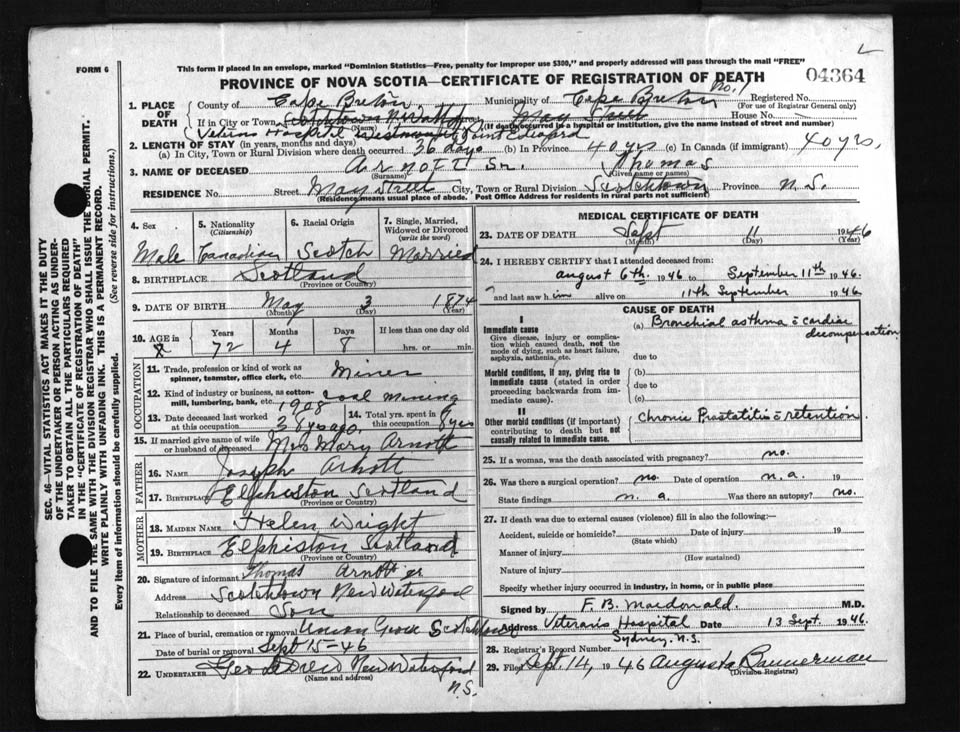 FORM 6
This form if placed in an envelope, marked "Dominion Statistics—Free, penalty for improper use $300," and properly addressed will pass through the mail "FREE"
PROVINCE OF NOVA SCOTIA—CERTIFICATE OF REGISTRATION OF DEATH
04364
1. PLACE OF DEATH
County of Cape Breton Municipality of Cape Breton No. 1 Registered No.
(For use of Registrar General only)
If in City or Town Scotchtown May Street House No.
(Name) (If death occurred in a hospital or institution, give the name instead of street and number)
Hospital
2. LENGTH OF STAY (in years, months and days)
(a) In City, Town or Rural Division where death occurred 36 days (b) In Province 40 yrs (c) In Canada (if immigrant) 40 yrs.
3. NAME OF DECEASED Arnott Sr. Thomas
(Surname) (Given name or names)
RESIDENCE No. Street May Street City, Town or Rural Division Scotchtown Province N.S.
(Residence means usual place of abode. Post Office Address for residents in rural parts not sufficient)
4. Sex Male
5. Nationality (Citizenship) Canadian
6. Racial Origin Scotch
7. Single, Married, Widowed or Divorced (write the word) Married
8. BIRTHPLACE Scotland
(Province or Country)
9. DATE OF BIRTH May 3 1874
(Month) (Day) (Year)
10. AGE in Years Months Days If less than one day old
72 4 8 hrs. or min.
OCCUPATION
11. Trade, profession or kind of work as spinner, teamster, office clerk, etc. Miner
12. Kind of industry or business, as cotton-mill, lumbering, bank, etc. Coal Mining
13. Date deceased last worked at this occupation 1908 38 yrs ago.
14. Total yrs. spent in this occupation 8 yrs
15. If married give name of wife or husband of deceased Mrs Mary Arnott
FATHER
16. NAME Joseph Arnott
17. BIRTHPLACE Elphiston Scotland
(Province or Country)
MOTHER
18. MAIDEN NAME Helen Wright
19. BIRTHPLACE Elphiston Scotland
(Province or Country)
20. Signature of informant Thomas Arnott Jr
Address Scotchtown New Waterford
Relationship to deceased Son
21. Place of burial, cremation or removal Union Grove Scotchtown
Date of burial or removal Sept 15-46
22. UNDERTAKER New Waterford
(Name and address) N.S.
MEDICAL CERTIFICATE OF DEATH
23. DATE OF DEATH Sept 11 1946
(Month) (Day) (Year)
24. I HEREBY CERTIFY that I attended deceased from:
August 6th. 1946 to September 11th 1946.
and last saw him alive on 11th September 1946
CAUSE OF DEATH
I
Immediate cause
Give disease, injury or complication which caused death, not the mode of dying, such as heart failure, asphyxia, asthenia, etc.
(a) Bronchial asthma c̄ cardiac decompensation
due to
Morbid conditions, if any, giving rise to immediate cause (stated in order proceeding backwards from immediate cause).
(b)
due to
(c)
II
Other morbid conditions (if important) contributing to death but not causally related to immediate cause.
Chronic Prostatitis c̄ retention.
25. If a woman, was the death associated with pregnancy? no.
26. Was there a surgical operation? no. Date of operation n.a. 19
State findings n.a. Was there an autopsy? no.
27. If death was due to external causes (violence) fill in also the following:—
Accident, suicide or homicide? Date of injury 19
(State which)
Manner of injury
(How sustained)
Nature of injury
Specify whether injury occurred in industry, in home, or in public place
Signed by F. B. Macdonald. M.D.
Address Veterans Hospital Date 13 Sept. 1946.
Sydney, N.S.
28. Registrar's Record Number
29. Filed Sept. 14, 1946 Augusta Bannerman
(Division Registrar)
SEC. 46—VITAL STATISTICS ACT MAKES IT THE DUTY
OF THE UNDERTAKER OR PERSON ACTING AS UNDERTAKER TO OBTAIN ALL THE PARTICULARS REQUIRED
IN THE "CERTIFICATE OF REGISTRATION OF DEATH"
AND TO FILE THE SAME WITH THE DIVISION REGISTRAR WHO SHALL ISSUE THE BURIAL PERMIT.
WRITE PLAINLY WITH UNFADING INK. THIS IS A PERMANENT RECORD.
Every item of information should be carefully supplied. (See reverse side for instructions.)